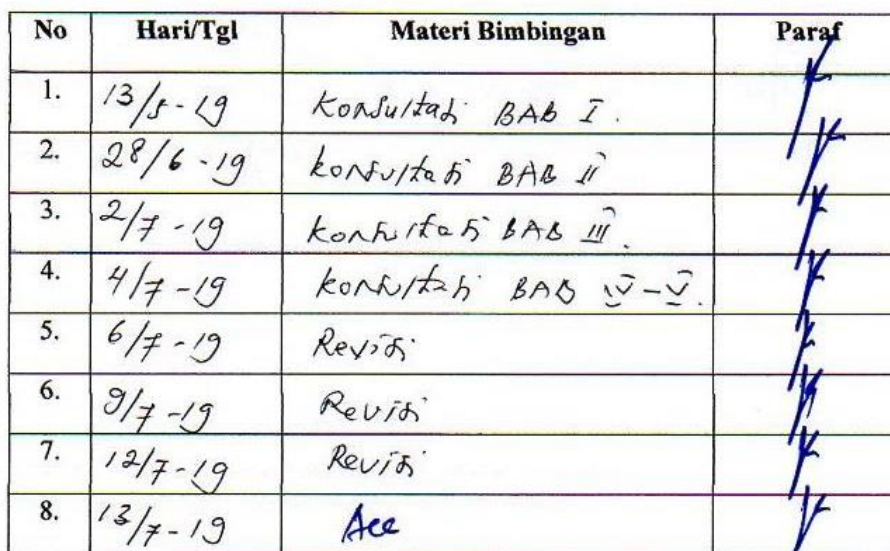 No Hari/Tgl Materi Bimbingan Paraf
1. 13/5-19 Konsultasi BAB I.
2. 28/6-19 konsultasi BAB II
3. 2/7-19 konsultasi BAB III.
4. 4/7-19 konsultasi BAB IV-V.
5. 6/7-19 Revisi
6. 9/7-19 Revisi
7. 12/7-19 Revisi
8. 13/7-19 Acc